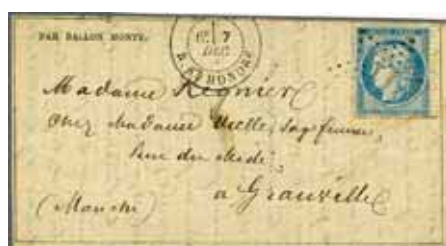 PAR BALLON MONTÉ.
7
DEC
R. ST HONORE
Madame Regnier
chez Madame Vielle, Sage femme,
Rue du Midi
à Granville
(Manche)